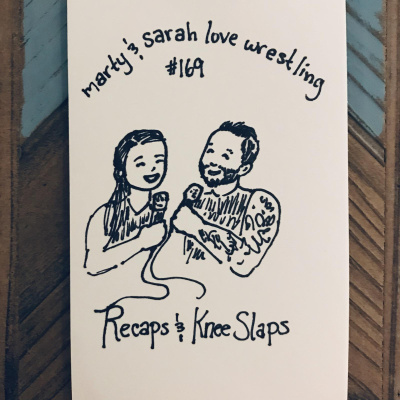 marty & sarah love wrestling
#169
Recaps & Knee Slaps